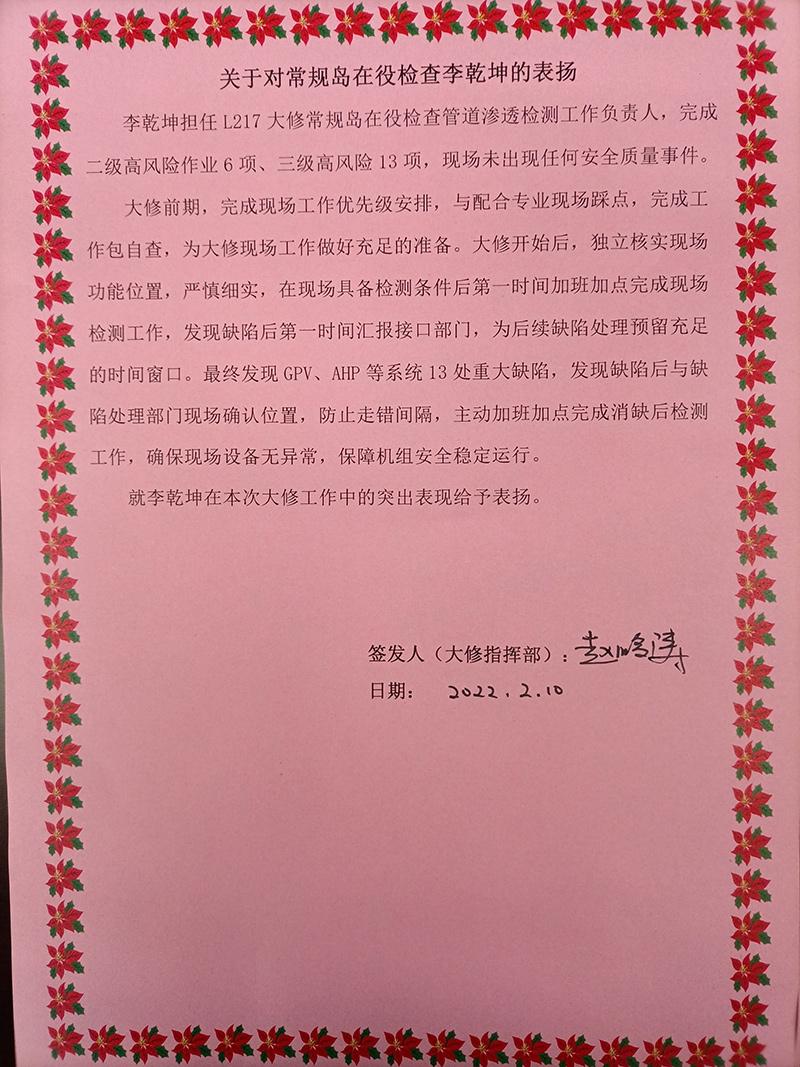 关于对常规岛在役检查李乾坤的表扬
李乾坤担任 L217 大修常规岛在役检查管道渗透检测工作负责人，完成
二级高风险作业 6 项、三级高风险 13 项，现场未出现任何安全质量事件。
大修前期，完成现场工作优先级安排，与配合专业现场踩点，完成工
作包自查，为大修现场工作做好充足的准备。大修开始后，独立核实现场
功能位置，严慎细实，在现场具备检测条件后第一时间加班加点完成现场
检测工作，发现缺陷后第一时间汇报接口部门，为后续缺陷处理预留充足
的时间窗口。最终发现 GPV、AHP 等系统 13 处重大缺陷，发现缺陷后与缺
陷处理部门现场确认位置，防止走错间隔，主动加班加点完成消缺后检测
工作，确保现场设备无异常，保障机组安全稳定运行。
就李乾坤在本次大修工作中的突出表现给予表扬。
签发人（大修指挥部）：赵
日期： 2022.2.10